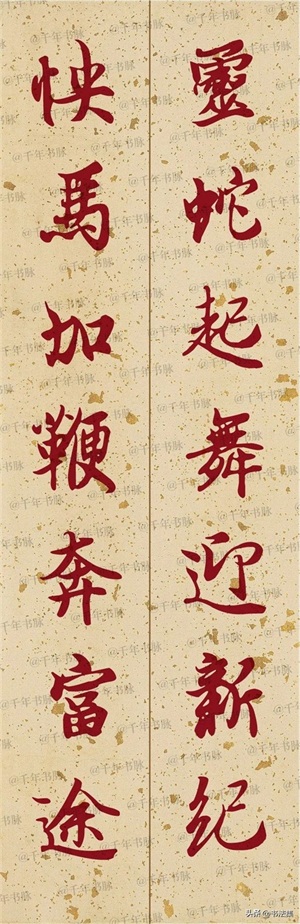 靈蛇起舞迎新纪
快馬加鞭奔富途
@千年书脉
头条@书法班